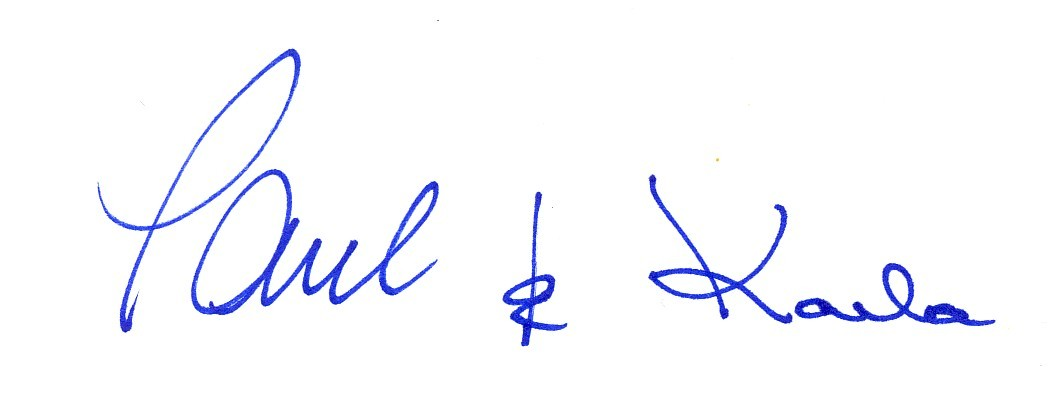 Paul & Karla